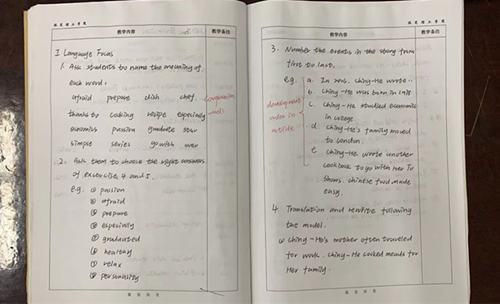 教学内容
教学备注
I Language Focus
1. Ask students to name the meaning of
each word.
afraid prepare dish chef
thanks to cooking recipe especially
economics passion graduate star
simple series go with over
2. Ask them to choose the right answers
of excercise 4 and 5.
e.g. ① passion
② afraid
③ prepare
④ especially
⑤ graduated
⑥ healthy
⑦ relax
⑧ personality
教学内容
教学备注
3. Number the events in the story from
first to last.
e.g. a. In 1998, Ching-He wrote..
b Ching-He was born in 1978
c. Ching-He studied economics
in college.
d Ching-He's family moved
to London.
e. Ching-He wrote another
cookbook to go with her TV
shows. Chinese food made
easy.
development
order in
4 Translation and rewrite following
the model.
① Ching-He's mother often traveled
for work. Ching-He cooked meals for
Her family.